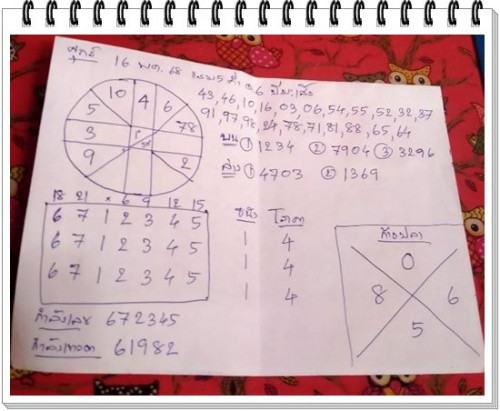 ศุกร์ 16 พ.ค. 68
43, 46, 10, 16, 03, 06, 54, 55, 52, 32, 37
91, 97, 98, 24, 78, 71, 81, 88, 65, 64
บน ① 1234 ② 7904 ③ 3296
ล่าง ① 4703 ② 1369
10 4 6
5 78
3
9 2
18 21 × 6 9 12 15
6 7 1 2 3 4 5
6 7 1 2 3 4 5
6 7 1 2 3 4 5
1 4
1 4
1 4
0
8 6
5
กำลังเลข 672345
61982